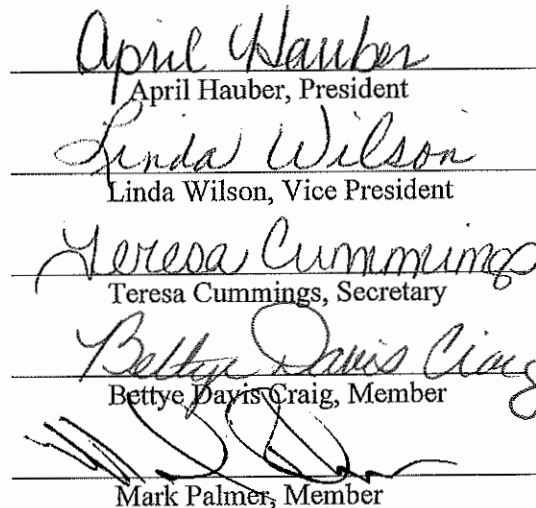 April Hauber
April Hauber, President
Linda Wilson
Linda Wilson, Vice President
Teresa Cummings
Teresa Cummings, Secretary
Bettye Davis Craig
Bettye Davis Craig, Member
Mark Palmer, Member